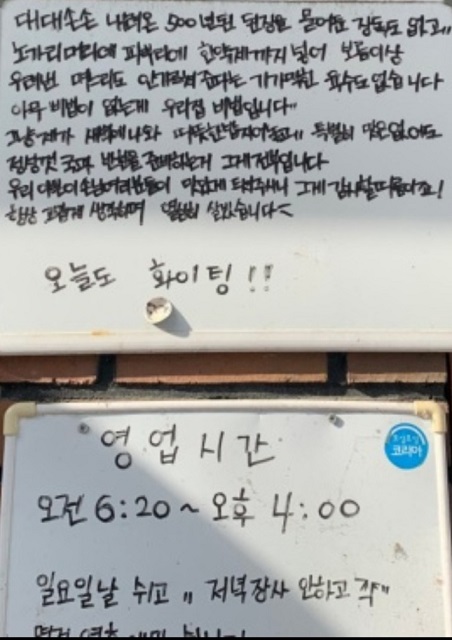 대대손손 내려온 500년된 된장을 물어온 장독도 없고"
노가리머리에 파뿌리에 한약재까지 넣어 보름이상
우려낸 며느리도 안가르쳐준다는 기가막힌 육수도 없습니다
아무 비법이 없는게 우리집 비법입니다"
그냥 제가 새벽에 나와 따뜻한밥지어놓고" 특별히 맛은없어도
정성껏 국과 반찬을 준비하는거 그게전부입니다
우리 이쁜이손님여러분들이 맛있게 드셔주시니 그게 감사할따름이죠!
항상 고맙게 생각하며 열심히 살겠습니다<
오늘도 화이팅!!
영업시간
코리아
오전 6:20 ~ 오후 4:00
일요일날 쉬고 " 저녁장사 안하고 각"